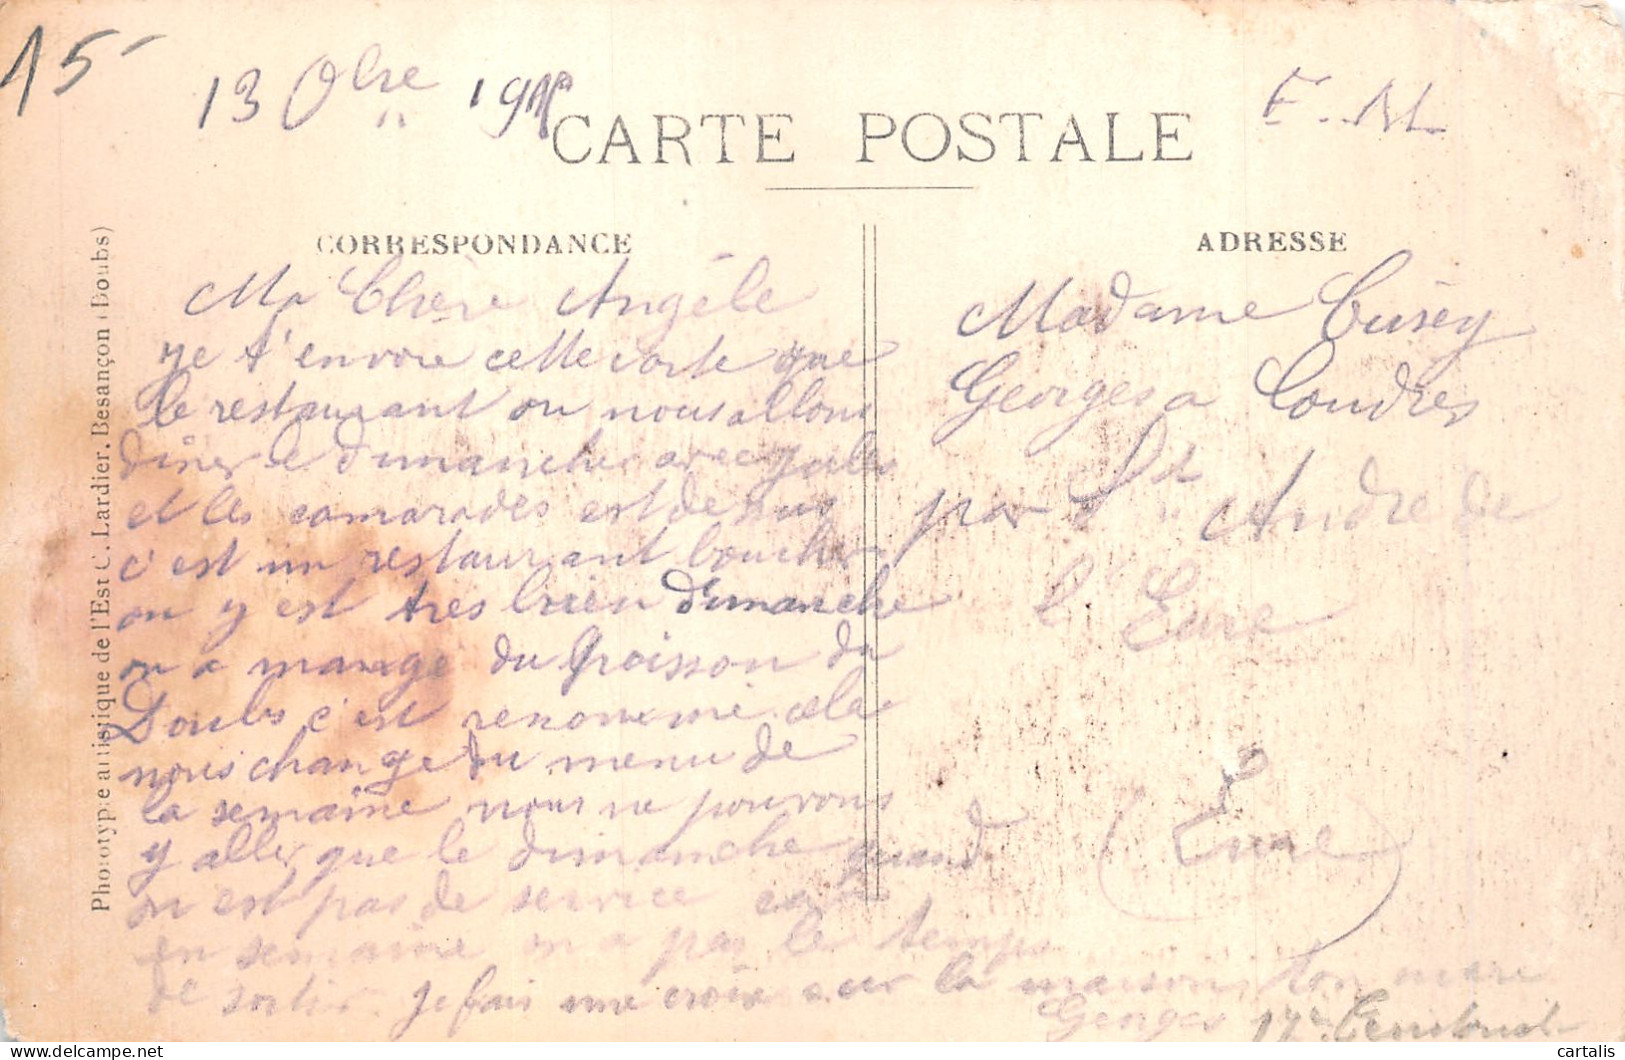 15-
13 8bre 191
F. M.
CARTE POSTALE
CORRESPONDANCE
ADRESSE
Phototypie artistique de l'Est C. Lardier, Besançon (Doubs)
Ma Chère Angèle
je t'envoie cette carte que
le restaurant ou nous allons
diner le dimanche avec Jules
et les camarades est de sus
c'est un restaurant boucher
on y est tres bien dimanche
on a mangé du poisson du
Doubs c'est renommé cela
nous change du menu de
la semaine nous ne pouvons
y aller que le dimanche quand
on est pas de service car
en semaine on a pas le temps
de sortir. je fais une croix sur la maison, ton mari
Georges 17e
Madame Cusey
Georges a Coudres
par St André de
l'Eure
Eure
cartalis